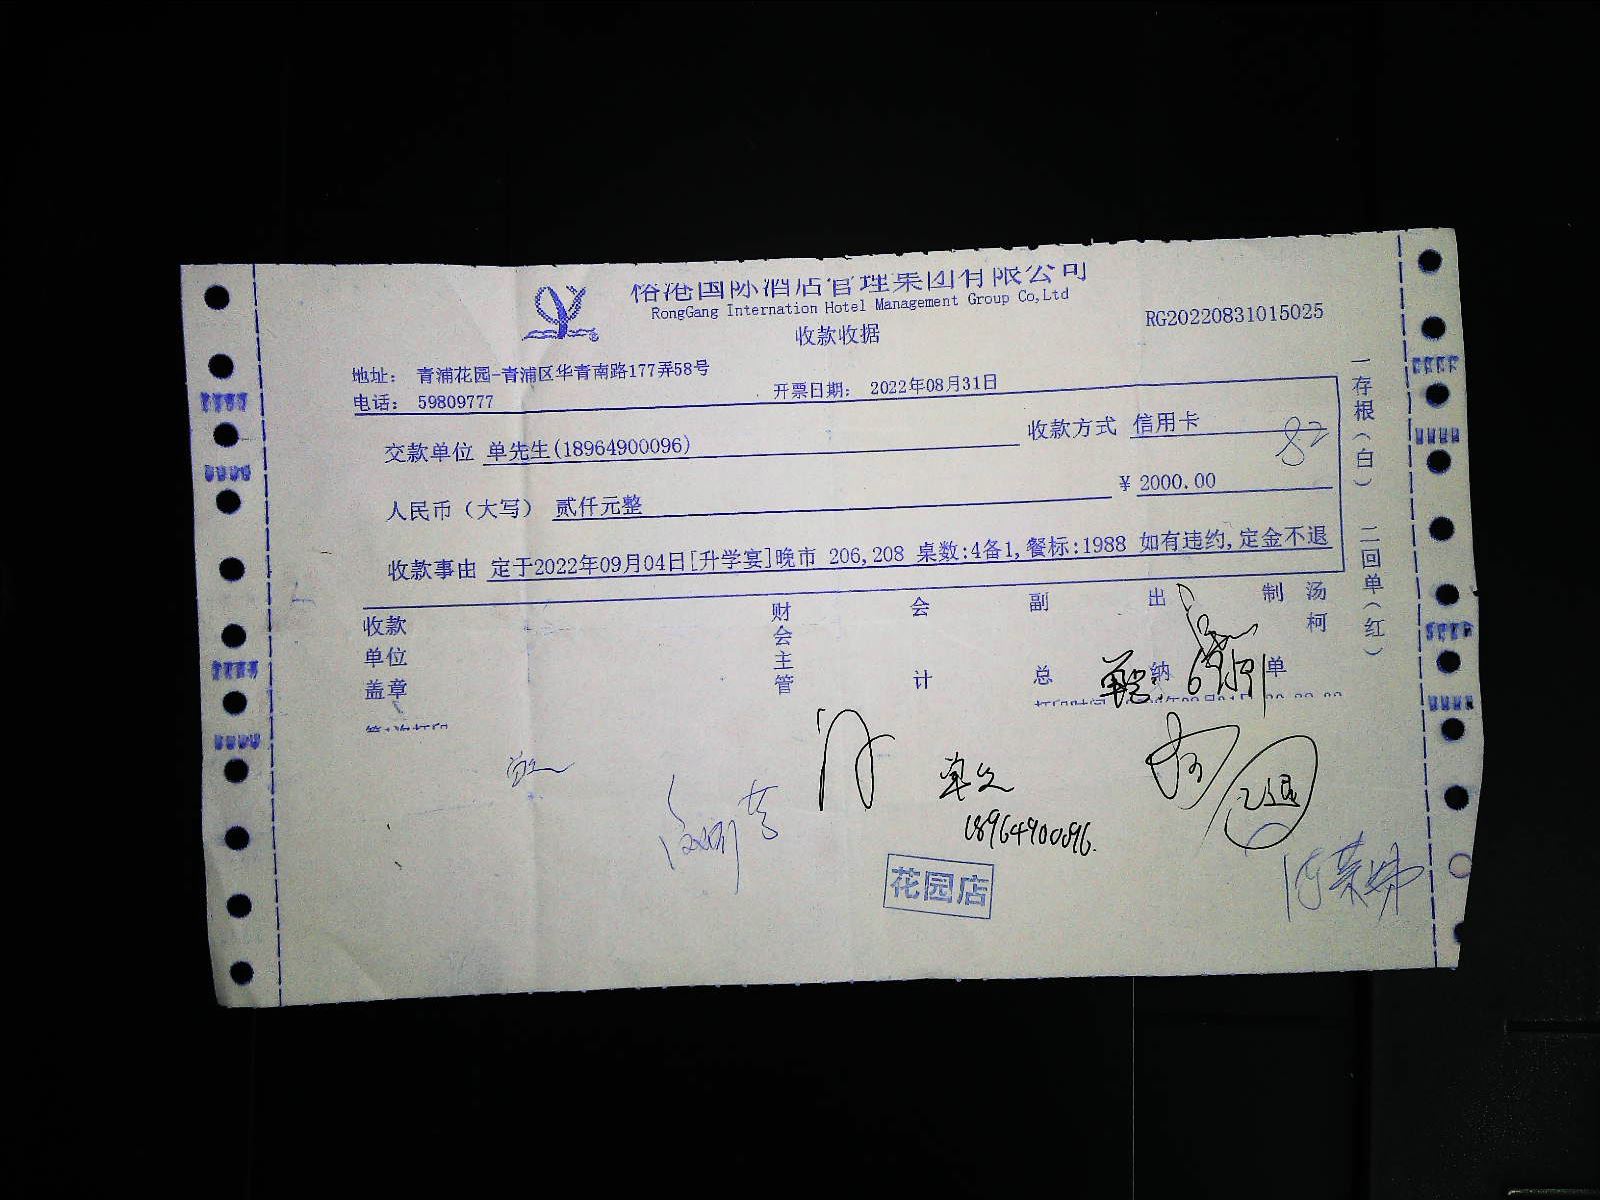 国际酒店管理集团有限公司
RongGang Internation Hotel Management Group Co,Ltd
收款收据
RG20220831015025
地址： 青浦花园-青浦区华青南路177弄58号
电话： 59809777
开票日期： 2022年08月31日
交款单位 单先生(18964900096)
收款方式 信用卡
人民币（大写） 贰仟元整
¥ 2000.00
收款事由 定于2022年09月04日[升学宴]晚市 206,208 桌数:4备1,餐标:1988 如有违约,定金不退
收款单位盖章
财会主管
会计
副总
出纳
制单
汤柯
一存根（白） 二回单（红）
18964900096.
已退
花园店